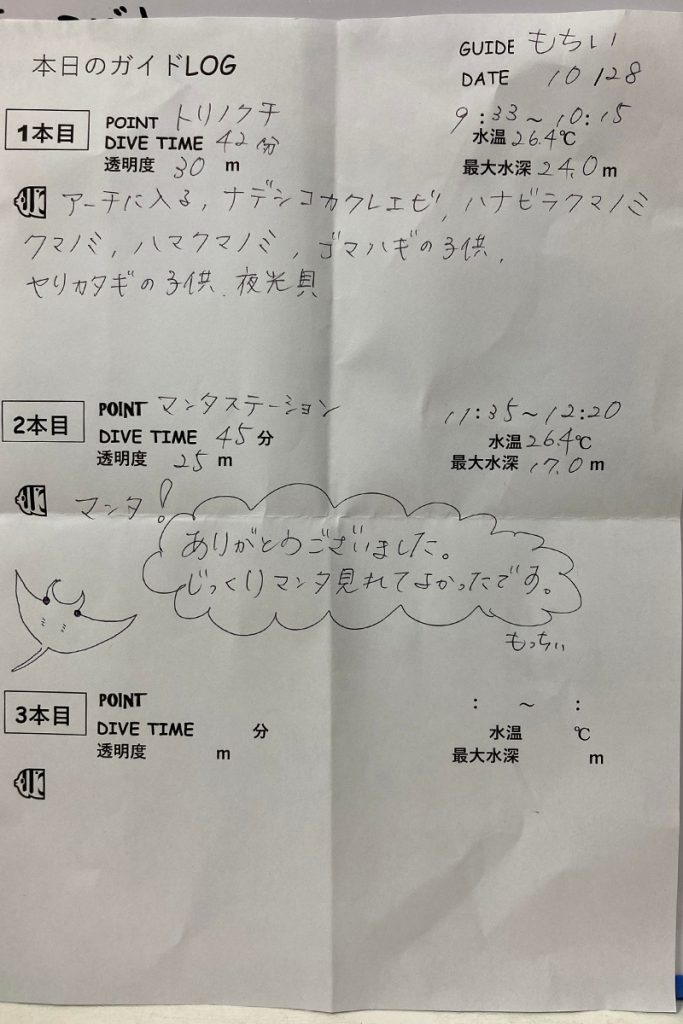 本日のガイドLOG
GUIDE もちい
DATE 10/28
1本目
POINT トリノクチ
9:33～10:15
DIVE TIME 42分
水温26.4℃
透明度 30 m
最大水深24.0m
アーチに入る, ナデシコカクレエビ, ハナビラクマノミ
クマノミ, ハマクマノミ, ゴマハギの子供,
ヤリカタギの子供, 夜光貝
2本目
POINT マンタステーション
11:35～12:20
DIVE TIME 45分
水温26.4℃
透明度 25 m
最大水深17.0m
マンタ!
ありがとうございました。
じっくりマンタ見れてよかったです。
もっちぃ
3本目
POINT
: ～ :
DIVE TIME 分
水温 ℃
透明度 m
最大水深 m